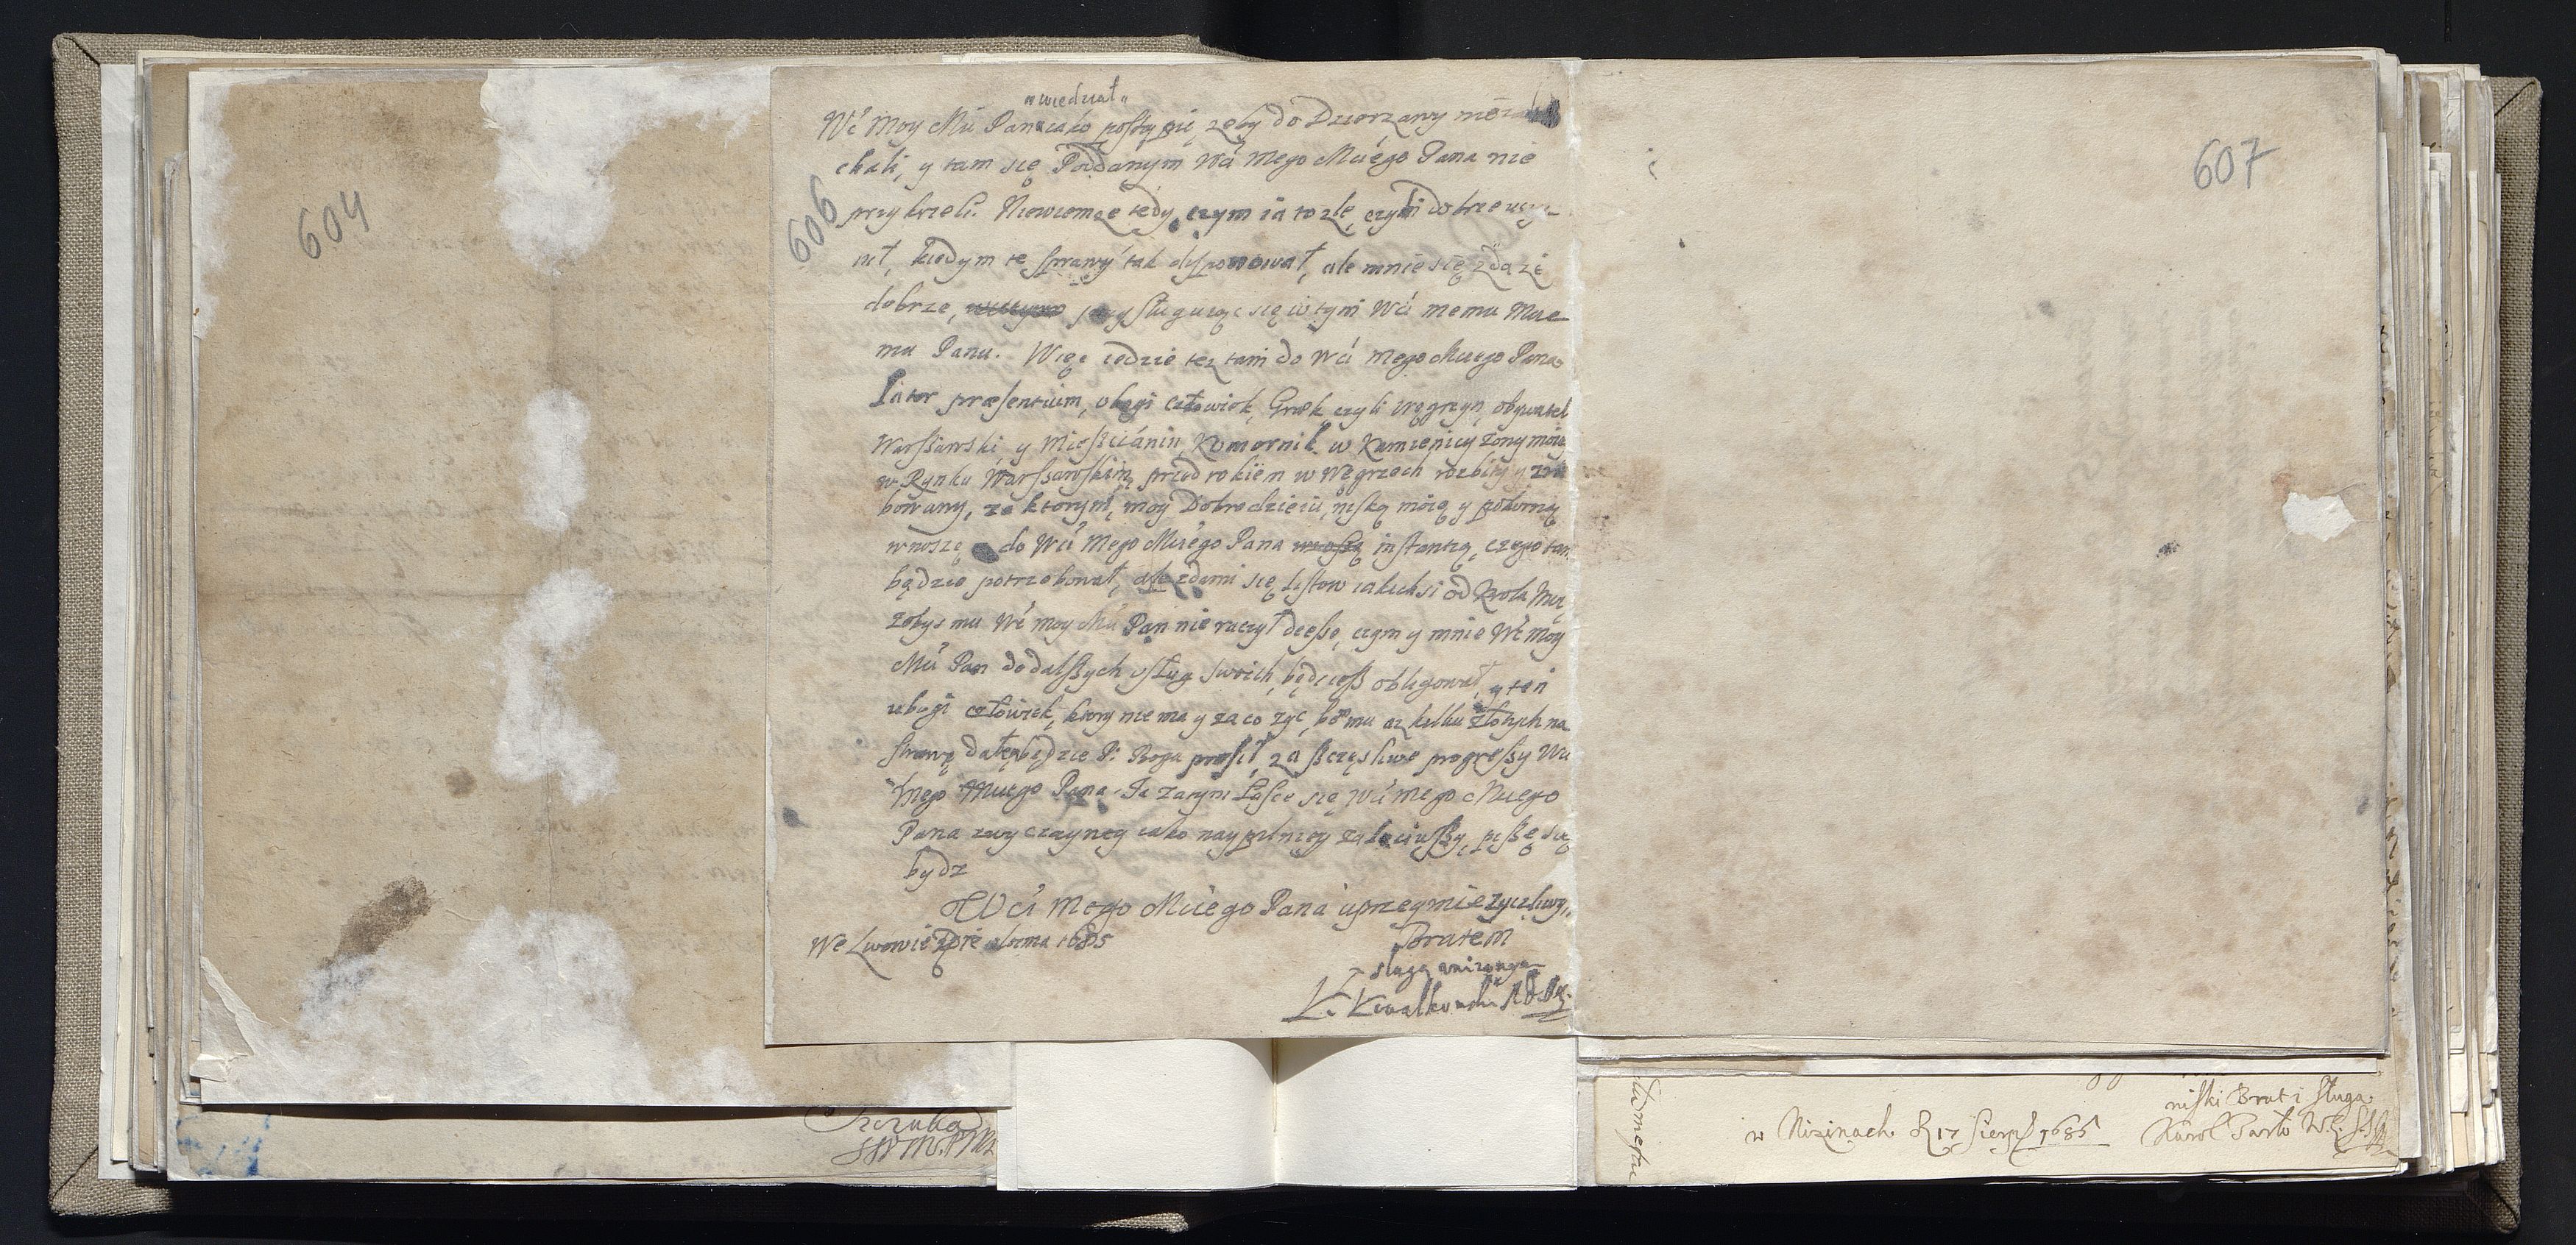 604
606
"wiedział"
Wć Moy Mći Pan iako postąpić, żeby do Dzierzany nie
chali, y tam się Poddanym Wći Mego Mćiego Pana nie
przykrzeli. Niewiem tedy czym ia to zle, czyli dobrze uczy-
nił, kiedym te sprawy tak disponował, ale mnie się zda że
dobrze, przysługuiąc się w tym Wći memu Mcie
mu Panu. Więc iedzie tez tam do Wći Mego Mciego Pana
lator præsentium, ubogi człowiek, Græk czyli Węgrzyn, obywatel
Warszawski y Mieszczánin, Komornik w Kamienicy żony moiey
w Rynku Warszawskim, przed rokiem w Węgrzech rozbity y zra
bowany, za ktorym, moy Dobrodzieiu, niską moię y pokorną
wnoszę do Wći Mego Mćiego Pana instantią, czego tam
będzie potrzebował, ale zdami się listow iakichsi od Krola Imci
żebys mu Wć moy Mći Pan nie raczył deesse, czym y mnie Wć Moy
Mći Pan do dalszych usług swoich będziesz obligował, y ten
ubogi człowiek, ktory nie ma y za co żyć, bom mu az kilku złotych na
strawę dał, będzie P. Boga prosił za szczęsliwe progressy Wci
Mego Mciego Pana. Ia zatym Łasce się Wći mego Mciego
Pana zwyczayney iako naypilniey zaleciwszy, piszę się
bydz
Wći Mego Mćiego Pana uprzeymie zyczliwym
We Lwowie Dnie 1685
Bratem
sługą unizonym
K.
607
Szczuka
niski Brat i sługa
w Nizinach d 17 sierp 1685
Karol Tarło